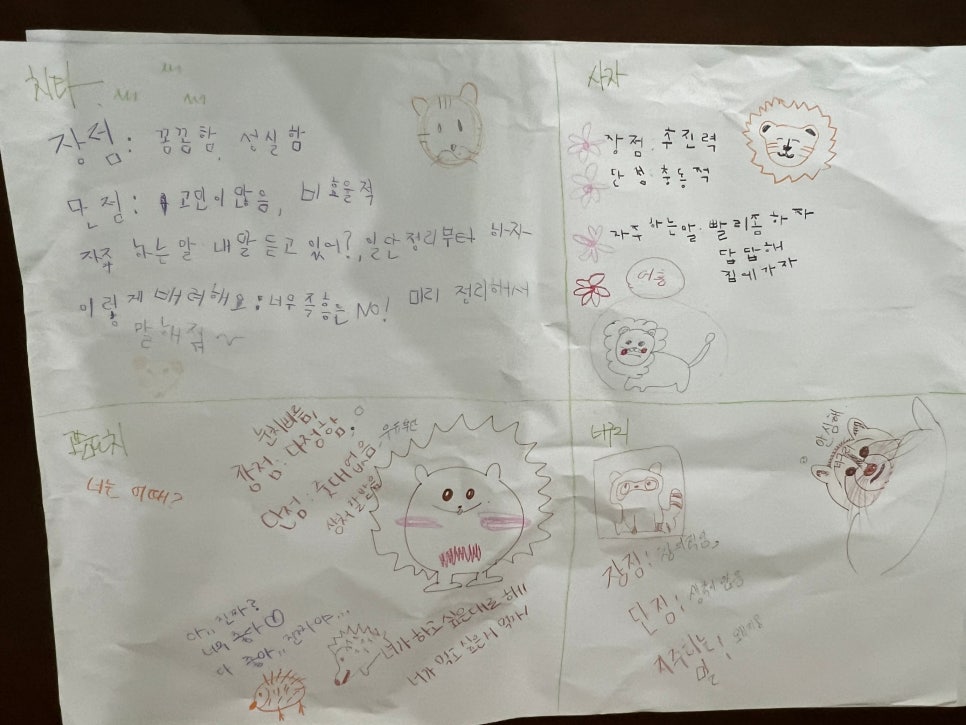 치타
장점: 꼼꼼함, 성실함
단점: 고민이 많음, 비효율적
자주 하는말: 내말 듣고 있어?, 일단 정리부터 하자
이렇게 배려해요: 너무 즉흥은 No! 미리 정리해서
말해줘~
사자
장점: 추진력
단점: 충동적
자주하는말: 빨리좀하자
답답해
집에가자
어흥
고슴도치
너는 어때?
눈치빠름,
장점: 다정함,
단점: 줏대없음, 우유부단
상처 잘받음
나,, 진짜로
너무 좋아
다 좋아,, 진짜야...
너가 하고 싶은대로 해!!
너가 먹고 싶은거 먹자!
너구리
안심해
너구리
장점:
단점:
자주하는
말: